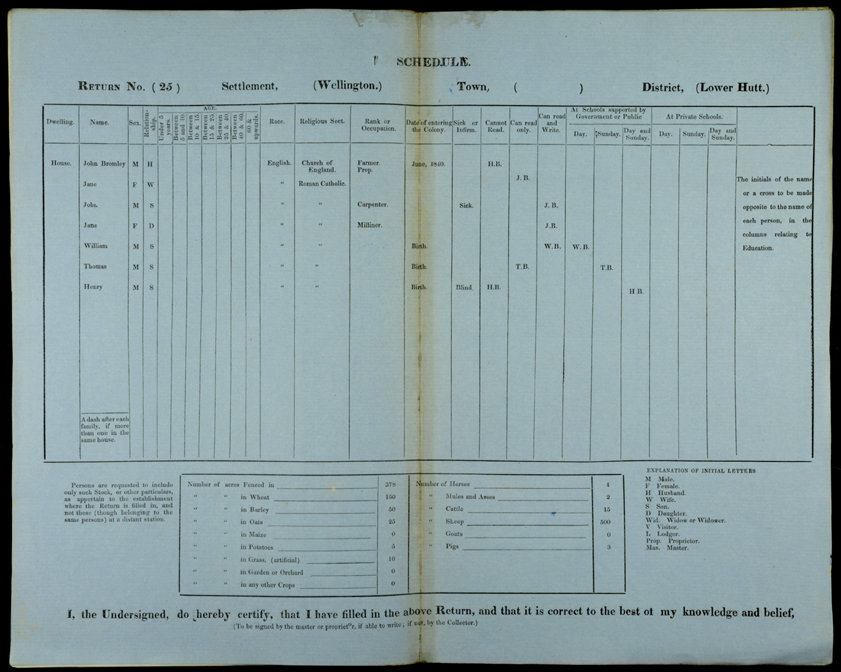 SCHEDULE.
RETURN NO. ( 25 ) Settlement, (Wellington.) Town, ( ) District, (Lower Hutt.)
Dwelling. Name. Sex. Relation-ship. AGE. Under 5 years. Between 5 and 10 Between 10 & 15 Between 15 & 25 Between 25 & 40 Between 40 & 60. 60 & upwards. Race. Religious Sect. Rank or Occupation. Date of entering the Colony. Sick or Infirm. Cannot Read. Can read only. Can read and Write. At Schools supported by Government or Public Day. Sunday. Day and Sunday. At Private Schools. Day. Sunday. Day and Sunday.
House. John Bromley M H English. Church of England. Farmer. Prop. June, 1840. H.B.
Jane F W " Roman Catholic. J. B.
John. M S " " Carpenter. Sick. J. B.
Jane F D " " Milliner. J.B.
William M S " " Birth. W. B. W. B.
Thomas M S " " Birth. T.B. T.B.
Henry M S " " Birth. Blind. H.B. H B.
The initials of the name
or a cross to be made
opposite to the name of
each person, in the
columns relating to
Education.
A dash after each
family, if more
than one in the
same house.
Persons are requested to include
only such Stock, or other particulars,
as appertain to the establishment
where the Return is filled in, and
not those (though belonging to the
same persons) at a distant station.
Number of acres Fenced in 378
" " in Wheat 150
" " in Barley 50
" " in Oats 25
" " in Maize 0
" " in Potatoes 5
" " in Grass, (artificial) 10
" " in Garden or Orchard 0
" " in any other Crops 0
Number of Horses 4
" Mules and Asses 2
" Cattle 15
" Sheep 500
" Goats 0
" Pigs 3
EXPLANATION OF INITIAL LETTERS
M Male.
F Female.
H Husband.
W Wife.
S Son.
D Daughter.
Wid. Widow or Widower.
V Visitor.
L Lodger.
Prop. Proprietor.
Mas. Master.
I, the Undersigned, do hereby certify, that I have filled in the above Return, and that it is correct to the best of my knowledge and belief,
(To be signed by the master or proprietor, if able to write; if not, by the Collector.)